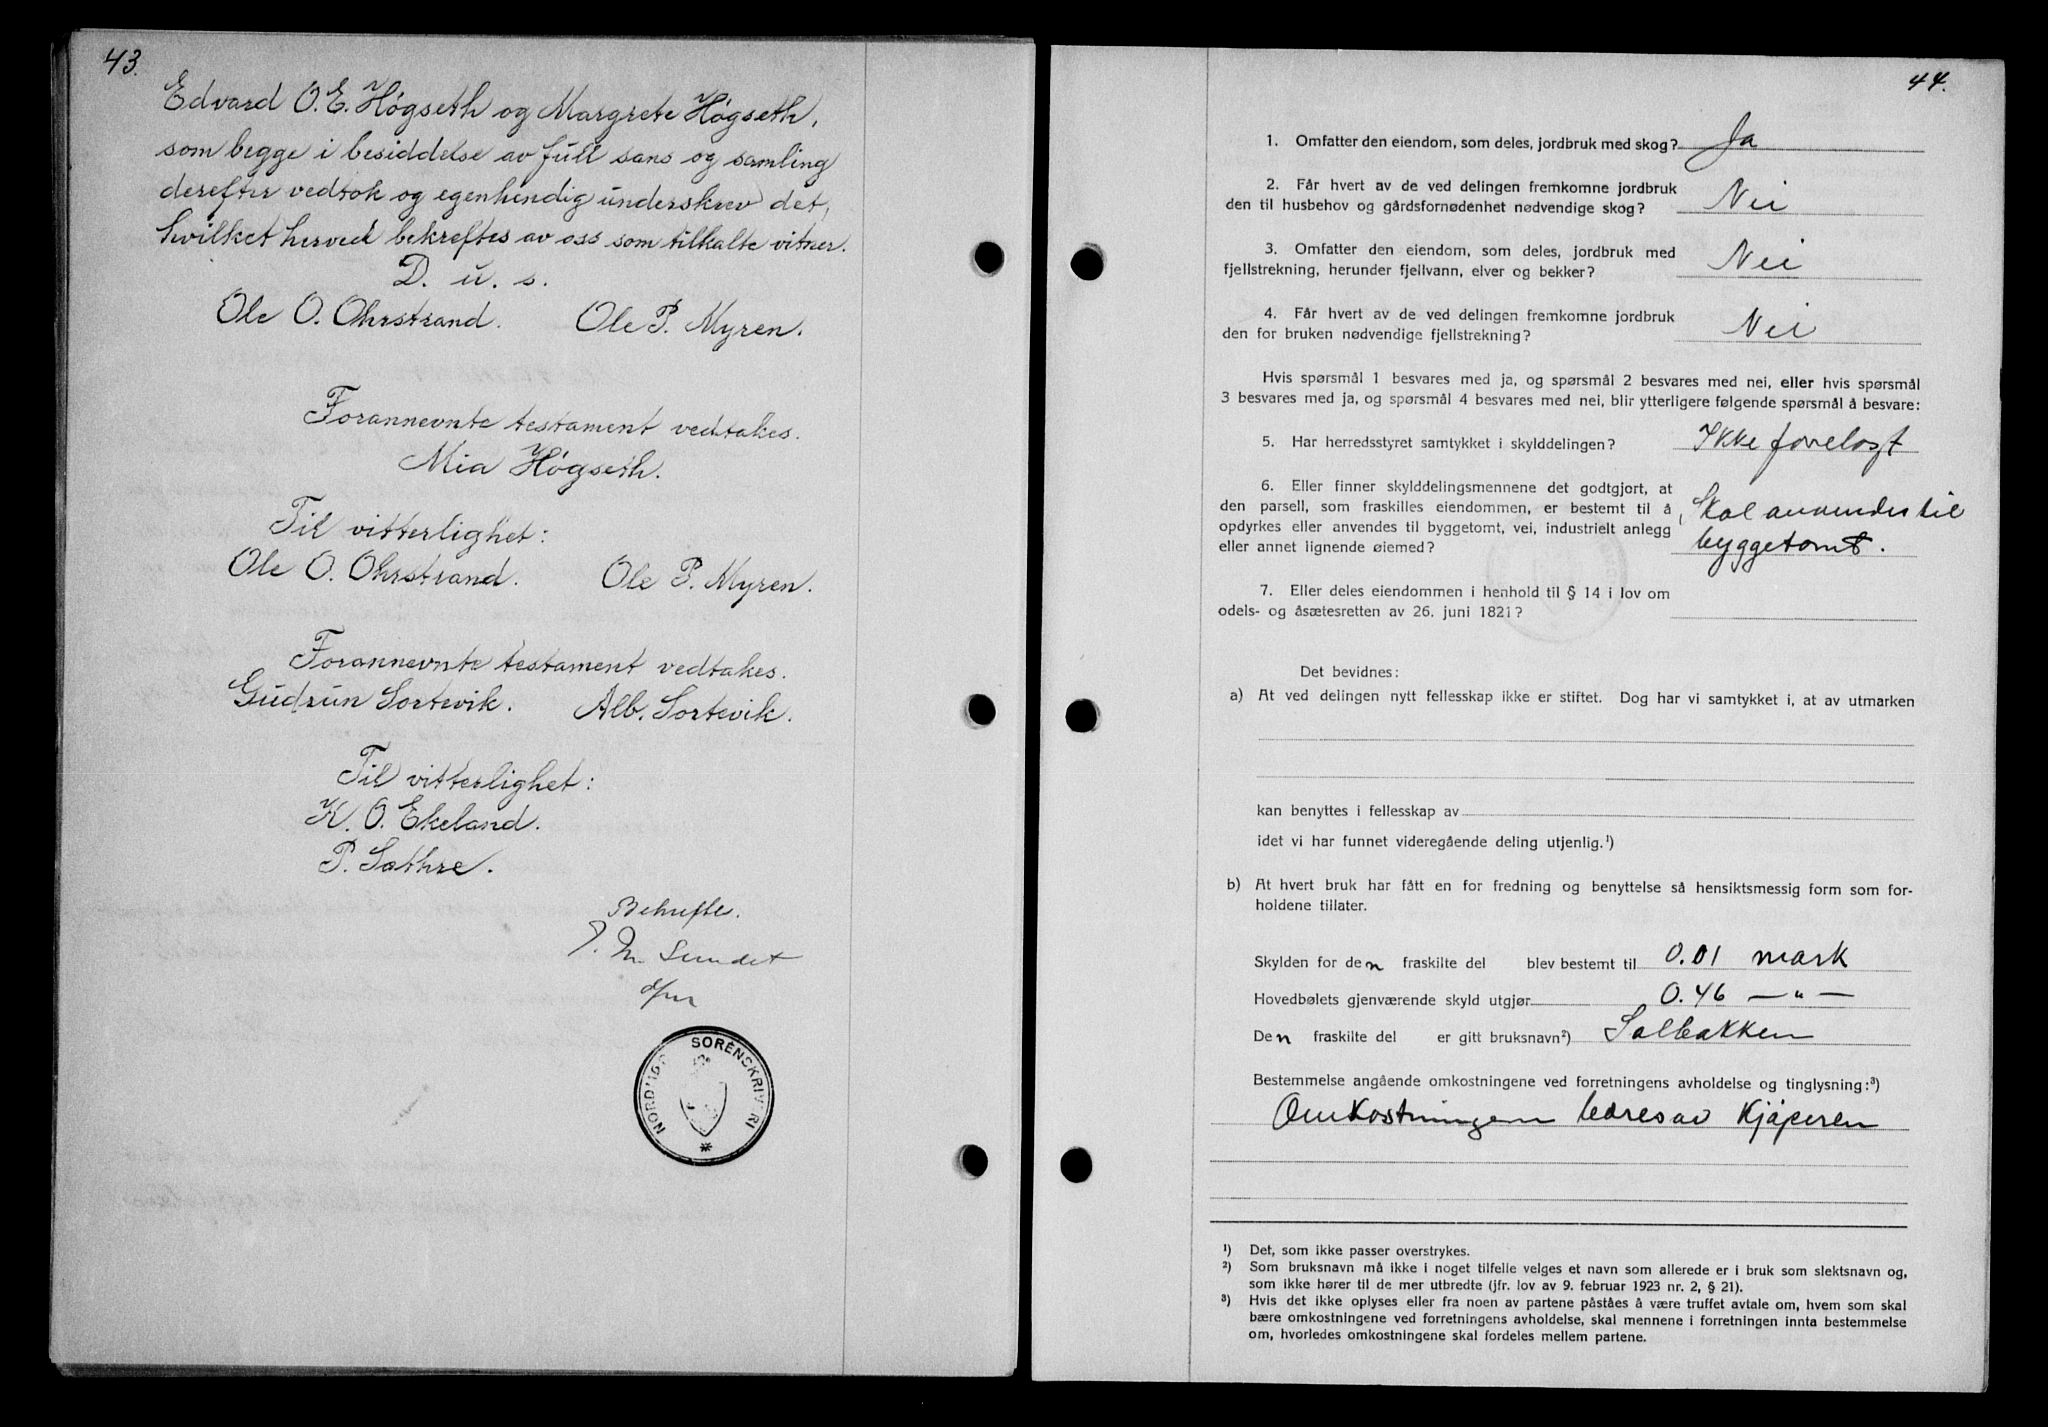 43.
Edvard O. E. Høgseth og Margrete Høgseth,
som begge i besiddelse av full sans og samling
derefter vedtok og egenhendig underskrev det,
hvilket herved bekreftes av oss som tilkalte vitner.
D. u. s.
Ole O. Ohrstrand. Ole P. Myren.
Forannevnte testament vedtakes.
Mia Høgseth.
Til vitterlighet:
Ole O. Ohrstrand. Ole P. Myren.
Forannevnte testament vedtakes.
Gudrun Sortevik. Alb. Sortevik.
Til vitterlighet:
K. O. Ekeland.
P. Sæthre.
Bekreftes.
Sundet
NORDMØR SORENSKRIVERI
44.
1. Omfatter den eiendom, som deles, jordbruk med skog? Ja
2. Får hvert av de ved delingen fremkomne jordbruk
den til husbehov og gårdsfornødenhet nødvendige skog? Nei
3. Omfatter den eiendom, som deles, jordbruk med
fjellstrekning, herunder fjellvann, elver og bekker? Nei
4. Får hvert av de ved delingen fremkomne jordbruk
den for bruken nødvendige fjellstrekning? Nei
Hvis spørsmål 1 besvares med ja, og spørsmål 2 besvares med nei, eller hvis spørsmål
3 besvares med ja, og spørsmål 4 besvares med nei, blir ytterligere følgende spørsmål å besvare:
5. Har herredsstyret samtykket i skylddelingen? Ikke forelagt
6. Eller finner skylddelingsmennene det godtgjort, at
den parsell, som fraskilles eiendommen, er bestemt til å
opdyrkes eller anvendes til byggetomt, vei, industrielt anlegg
eller annet lignende øiemed?
Skal anvendes til
byggetomt.
7. Eller deles eiendommen i henhold til § 14 i lov om
odels- og åsætesretten av 26. juni 1821?
Det bevidnes:
a) At ved delingen nytt fellesskap ikke er stiftet. Dog har vi samtykket i, at av utmarken
kan benyttes i fellesskap av
idet vi har funnet videregående deling utjenlig.¹)
b) At hvert bruk har fått en for fredning og benyttelse så hensiktsmessig form som for-
holdene tillater.
Skylden for den fraskilte del blev bestemt til 0.01 mark
Hovedbølets gjenværende skyld utgjør 0.46 — " —
Den fraskilte del er gitt bruksnavn²) Solbakken
Bestemmelse angående omkostningene ved forretningens avholdelse og tinglysning:³)
Omkostningen bæres av Kjøperen
¹) Det, som ikke passer overstrykes.
²) Som bruksnavn må ikke i noget tilfelle velges et navn som allerede er i bruk som slektsnavn og,
som ikke hører til de mer utbredte (jfr. lov av 9. februar 1923 nr. 2, § 21).
³) Hvis det ikke oplyses eller fra noen av partene påståes å være truffet avtale om, hvem som skal
bære omkostningene ved forretningens avholdelse, skal mennene i forretningen innta bestemmelse
om, hvorledes omkostningene skal fordeles mellem partene.